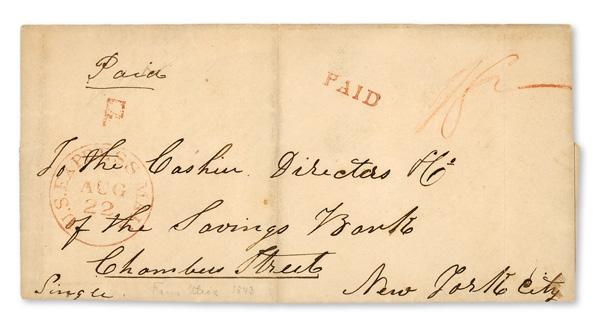 Paid
PAID
U.S. EXPRESS MAIL
AUG
22
To the Cashier Directors &c
of the Savings Bank
Chambers Street
New York City
Single
1843